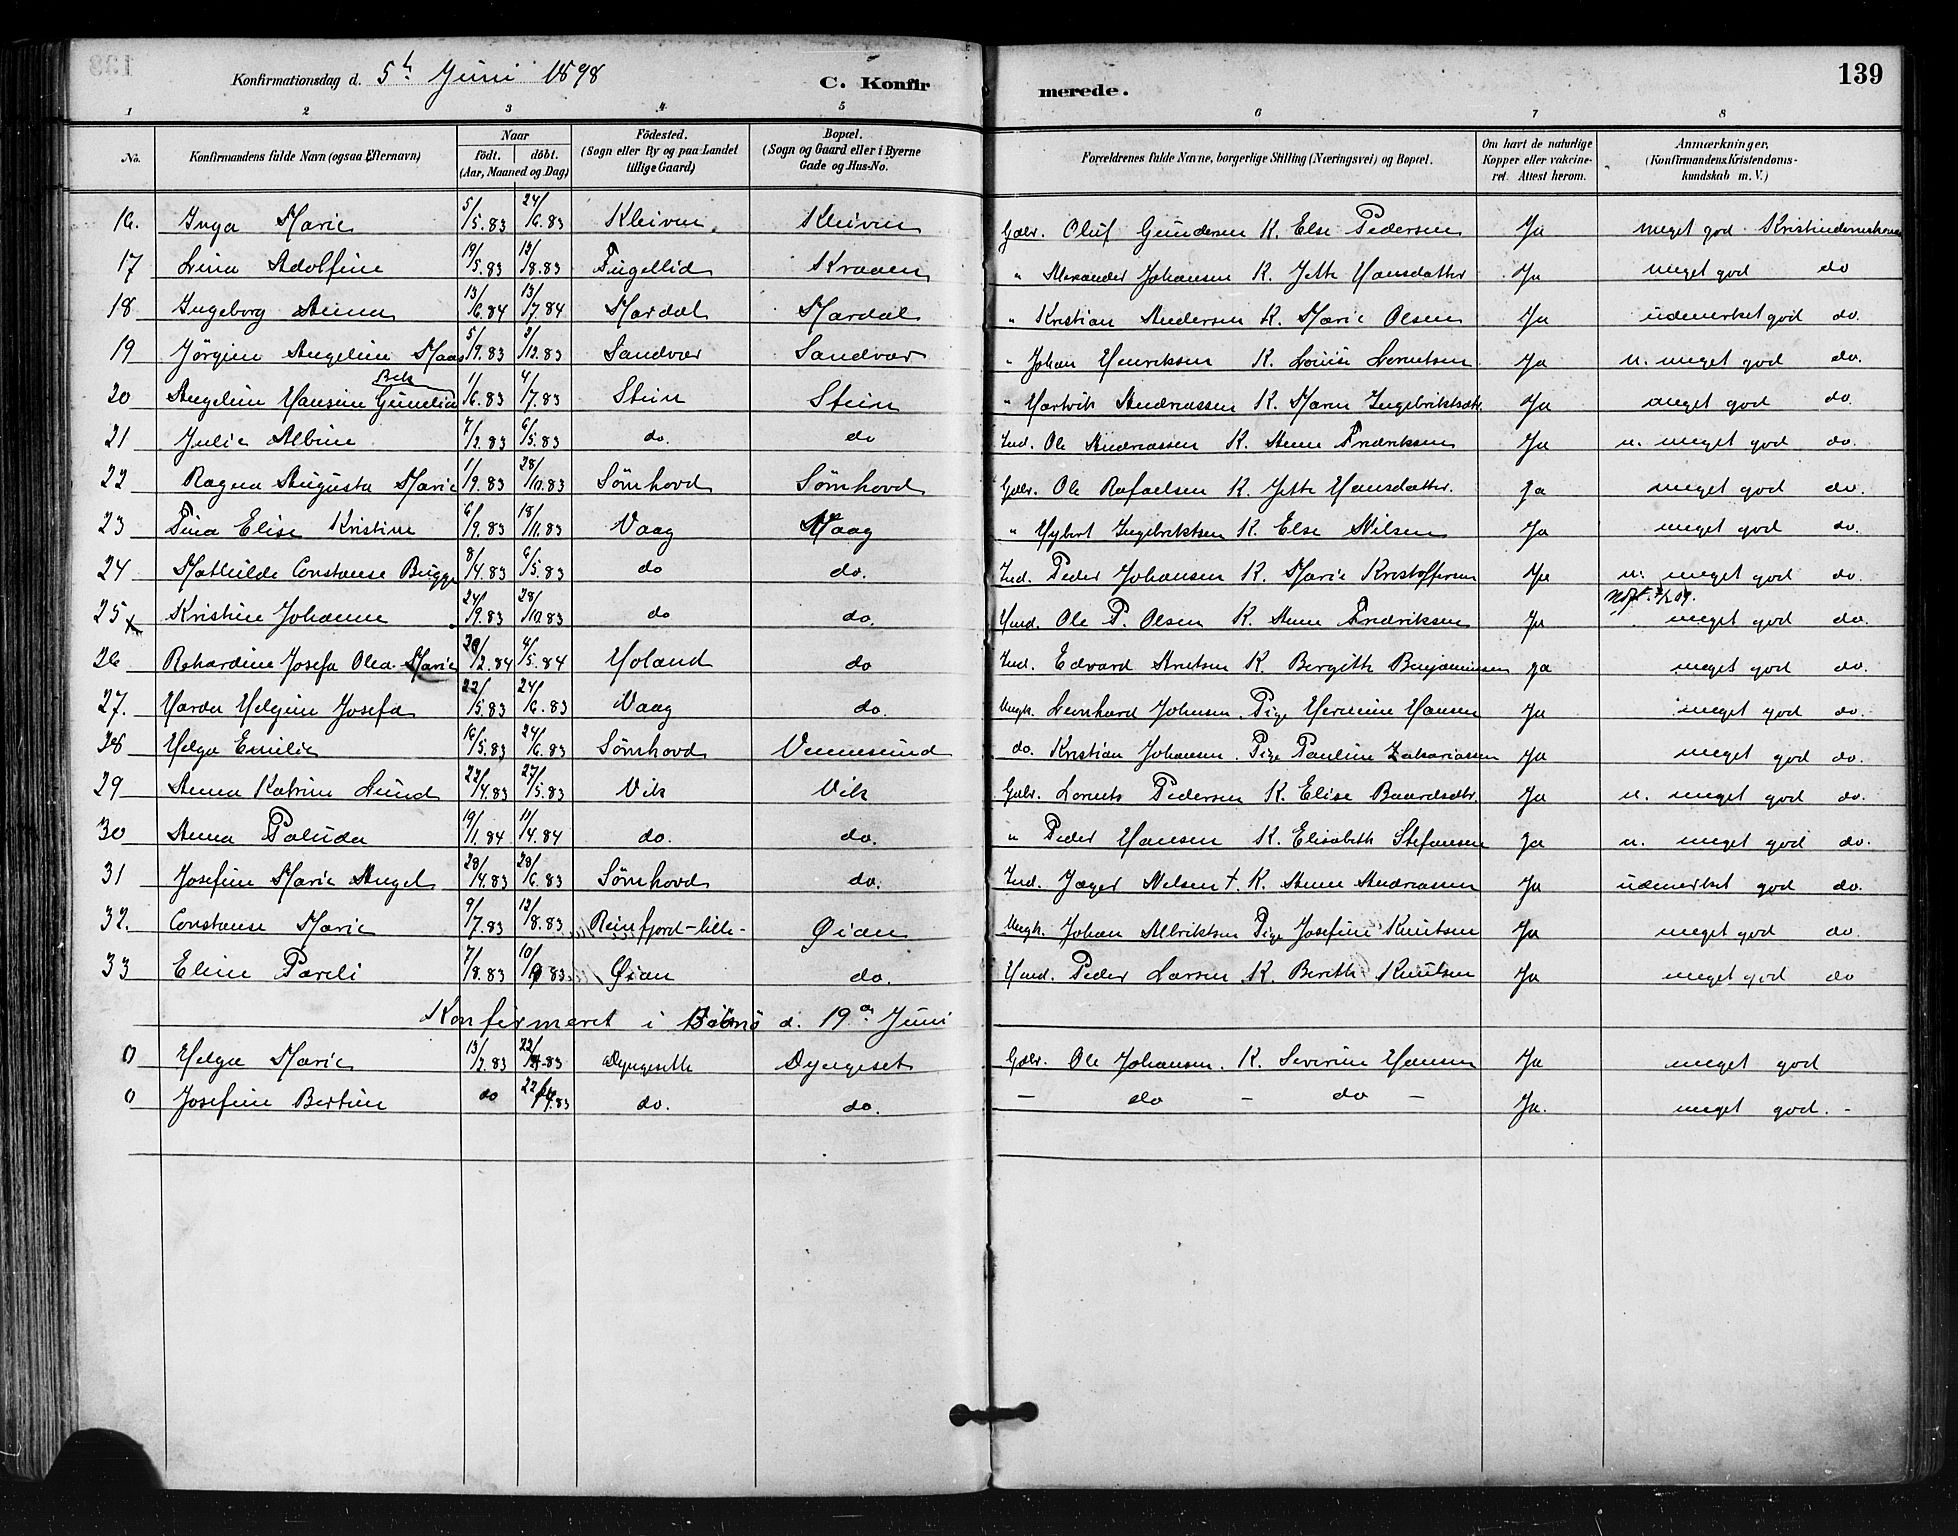 139
Konfirmationsdag d. 5te Juni 1898 C. Konfirmerede.
1 2 3 4 5 6 7 8
No. Konfirmandens fulde Navn (ogsaa Efternavn) Naar födt. döbt. (Aar, Maaned og Dag) Födested. (Sogn eller By og paa Landet tillige Gaard) Bopæl. (Sogn og Gaard eller i Byerne Gade og Hus-No. Forældrenes fulde Navne, borgerlige Stilling (Næringsvei) og Bopæl. Om havt de naturlige Kopper eller vakcineret. Attest herom. Anmærkninger, (Konfirmandens Kristendomskundskab m. V.)
16. Inga Marie 5/5.83 24/6.83 Kleiven Kleiven Gdbr. Oluf Gundersen K. Else Pedersen Ja meget god Kristendomskundsk
17 Lina Adolfine 19/5.83 12/8.83 Tugellid Kraaen " Alexander Johansen K. Jette Hansdatter Ja meget god do
18 Ingeborg Anna 13/6.84 13/7.84 Mardal Mardal " Kristian Andersen K. Marie Olsen Ja udmerket god do.
19 Jörgine Angeline Maas 5/9.83 2/12.83 Sandvær Sandvær " Johan Henriksen K. Louise Lorntsen Ja n. meget god do.
20 Angeline Hansine Gunelia Bek 1/6.83 4/7.83 Stein Stein " Hartvik Andreassen K. Maren Ingebriktsdtr. Ja meget god do.
21 Julie Albine 7/2.83 6/5.83 do. do Ind. Ole Andreassen K. Anne Fredriksen Ja n. meget god do.
22 Ragna Augusta Marie 1/9.83 28/10.83 Sömhovd Sömhovd Gdbr. Ole Rafaelsen K. Jette Hansdatter. Ja meget god do.
23 Tina Elise Kristine 6/9.83 18/11.83 Vaag Vaag " Hybert Ingebriktsen K. Else Nilsen Ja meget god do.
24 Mathilde Constanse Bugge 8/4.83 6/5.83 do do. Ind. Peder Johansen K. Marie Kristoffersen Ja n. meget god do.
25 x Kristine Johanne 24/9.83 28/10.83 do do. Hmd. Ole P. Olsen K. Anne Fredriksen Ja meget god do.
26 Rikardine Josefa Olea Marie 29/2.84 4/5.84 Holand do Ind. Edvard Arntsen K. Bergitte Benjaminsen Ja meget god do.
27. Harda Helgine Josefa 22/5.83 24/6.83 Vaag do. Ungk. Leonhard Johnsen. Pige Hermine Hansen Ja meget god do.
28 Helga Emilie 16/5.83 24/6.83 Sömhovd Vennesund do. Kristian Johansen. Pige Pauline Zakariassen Ja meget god do.
29 Anna Katrine Lund 22/4.83 27/5.83 Vik Vik Gdbr. Lornts Pedersen K. Elise Baardsdtr. Ja n. meget god do.
30 Anna Paluda 19/1.84 11/4.84 do. do. " Peder Hansen K. Elisabeth Stefansen Ja n. meget god do.
31 Josefine Marie Angel 20/4.83 20/6.83 Sömhovd do. Ind. Jæger Nilsen + K. Anne Andreassen Ja udmerket god do.
32. Constanse Marie 9/7.83 12/8.83 Reinfjord-lille- Öian Ungk. Johan Albriktsen Pige Josefine Knutsen Ja meget god do.
33 Eline Pareli 7/8.83 10/9 83 Öian do. Hmd. Peder Larsen K. Berith Knutsen Ja meget god do
Konfirmeret i d. 19de Juni
0 Helga Marie 13/2.83 22/4.83 Dyngeseth Dyngeset Gdbr. Ole Johansen. K. Severine Hansen Ja meget god
0 Josefine Bertine do 22/4.83 do. do. - do - do - Ja. meget god. -